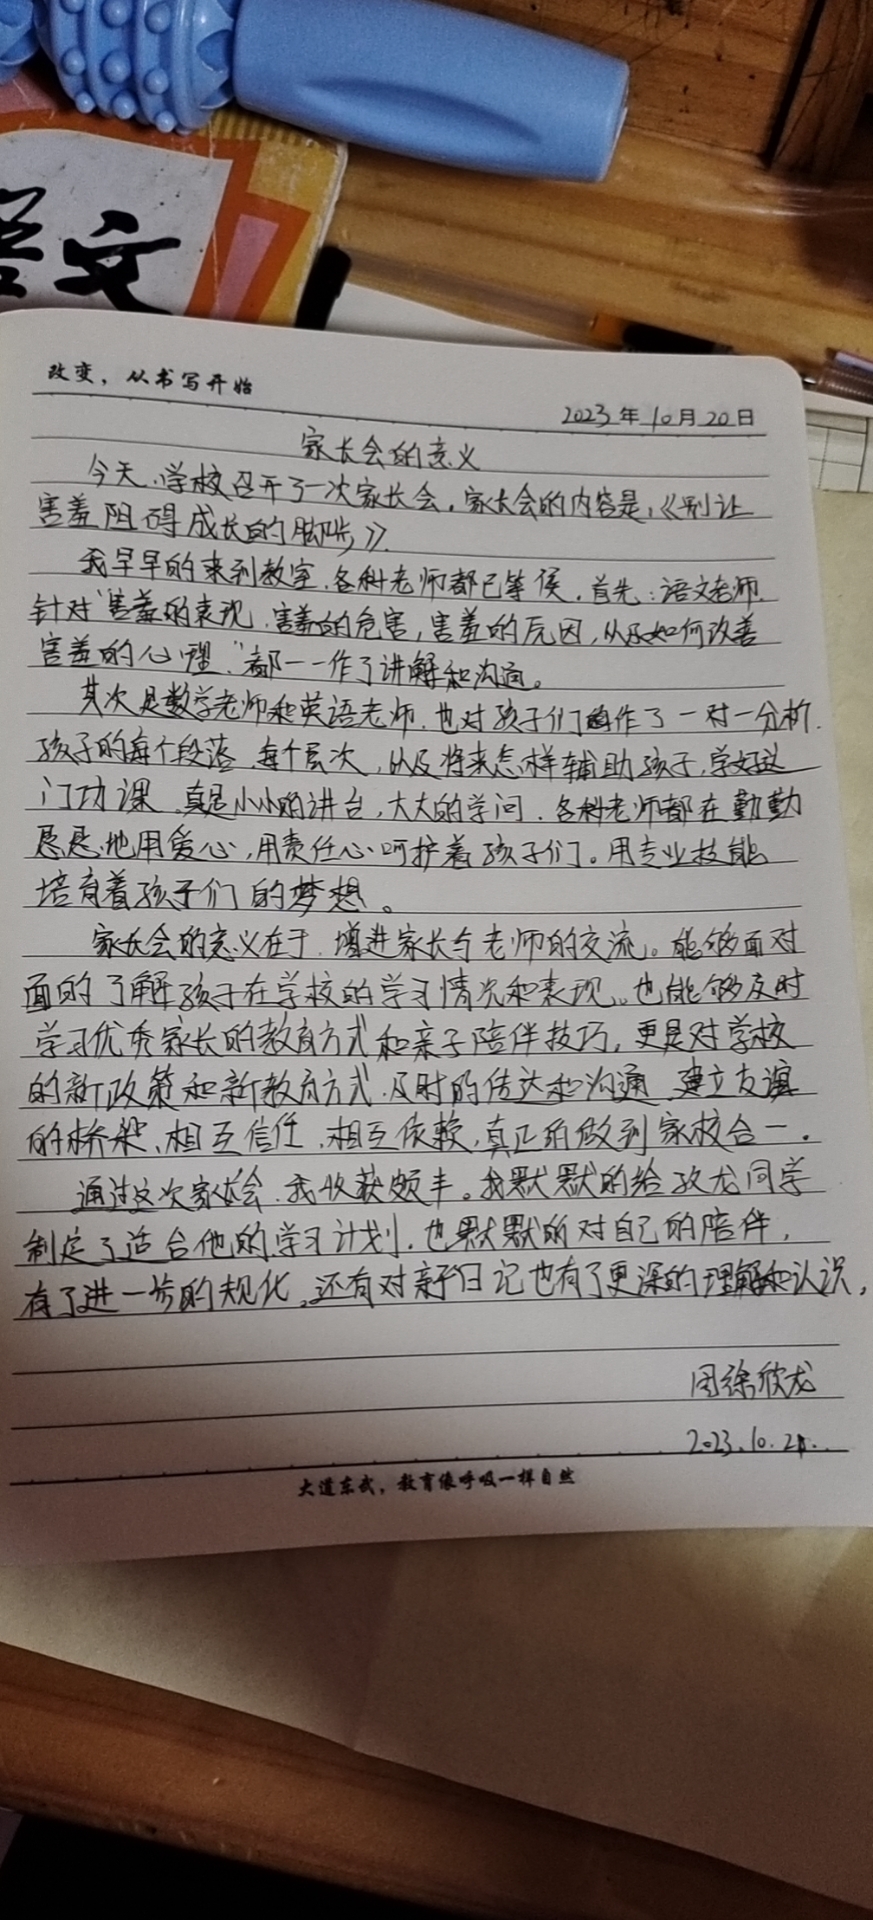 学文
改变，从书写开始
2023年10月20日
家长会的意义
今天，学校召开了一次家长会。家长会的内容是，《别让
害羞阻碍成长的脚步》。
我早早的来到教室，各科老师都已等侯，首先：语文老师，
针对"害羞的表现，害羞的危害，害羞的原因，从及如何改善
害羞的心理，"都一一作了讲解和沟通。
其次是数学老师和英语老师，也对孩子们作了一对一分析，
孩子的每个段落，每个层次，以及将来怎样辅助孩子，学好这
门功课，真是小小的讲台，大大的学问，各科老师都在勤勤
恳恳地用爱心，用责任心呵护着孩子们。用专业技能
培育着孩子们的梦想。
家长会的意义在于，增进家长与老师的交流。能够面对
面的了解孩子在学校的学习情况和表现。也能够及时
学习优秀家长的教育方式和亲子陪伴技巧，更是对学校
的新政策和新教育方式，及时的传达和沟通，建立友谊
的桥梁，相互信任，相互依赖，真正的做到家校合一。
通过这次家长会，我收获颇丰。我默默的给孜龙同学
制定了适合他的学习计划，也默默的对自己的陪伴，
有了进一步的规化，还有对亲子日记也有了更深的理解和认识，
周徐欣龙
2023.10.21.
大道东武，教育像呼吸一样自然